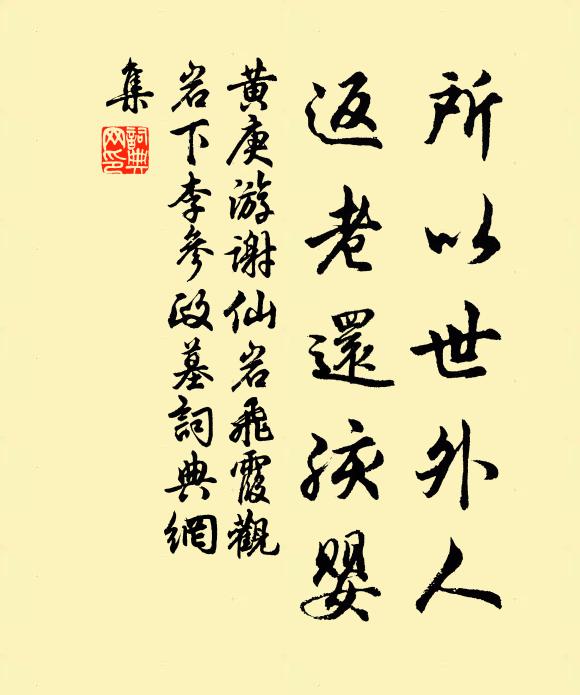 所以世外人
返老還孩嬰
黃庚游謝仙岩飛霞觀
岩下李參政墓詞典網
集
詞典
网印